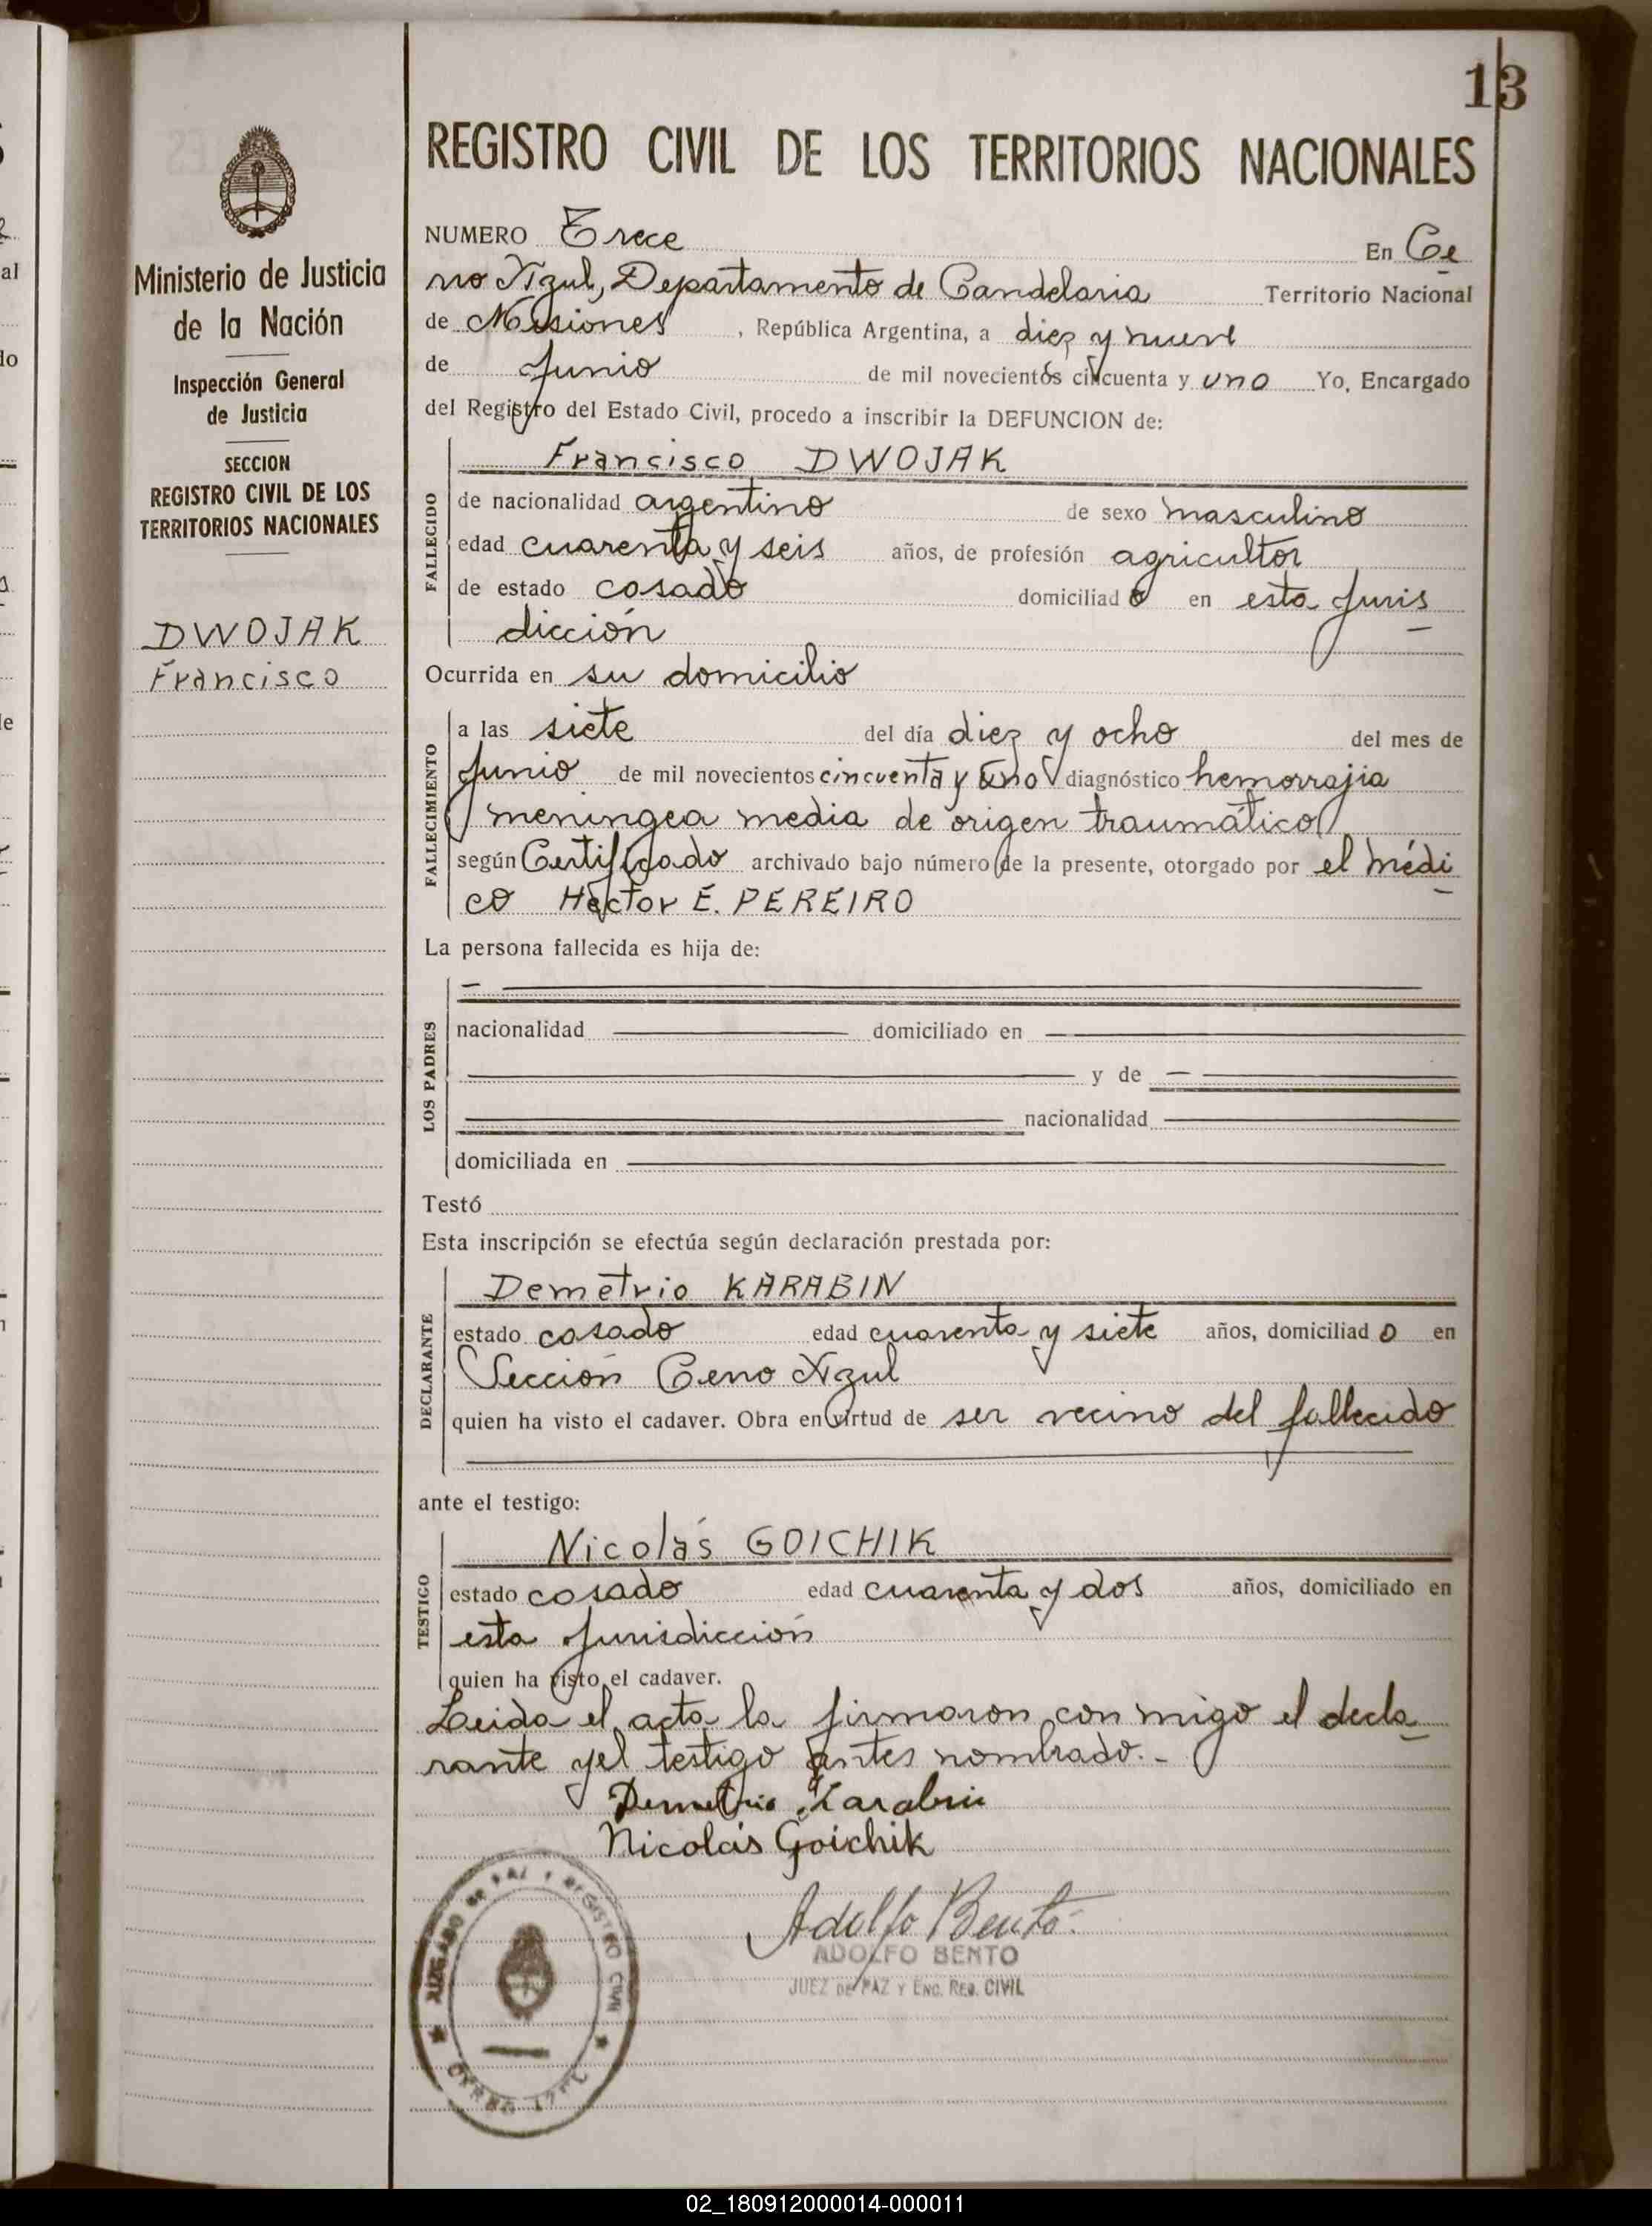 13
REGISTRO CIVIL DE LOS TERRITORIOS NACIONALES
Ministerio de Justicia
de la Nación
Inspección General
de Justicia
SECCION
REGISTRO CIVIL DE LOS
TERRITORIOS NACIONALES
DWOJAK
Francisco
NUMERO Trece En Ce
rro Azul, Departamento de Candelaria Territorio Nacional
de Misiones, República Argentina, a diez y nueve
de Junio de mil novecientos cincuenta y uno Yo, Encargado
del Registro del Estado Civil, procedo a inscribir la DEFUNCION de:
Francisco DWOJAK
FALLECIDO
de nacionalidad argentino de sexo masculino
edad cuarenta y seis años, de profesión agricultor
de estado casado domiciliado en esta Juris
dicción
Ocurrida en su domicilio
FALLECIMIENTO
a las siete del día diez y ocho del mes de
Junio de mil novecientos cincuenta y uno diagnóstico hemorrajia
meningea media de origen traumático
según Certificado archivado bajo número de la presente, otorgado por el médi
co Hector E. PEREIRO
La persona fallecida es hija de:
LOS PADRES
nacionalidad domiciliado en
y de
nacionalidad
domiciliada en
Testó
Esta inscripción se efectúa según declaración prestada por:
DECLARANTE
Demetrio KARABIN
estado casado edad cuarenta y siete años, domiciliado en
Sección Cerro Azul
quien ha visto el cadaver. Obra en virtud de ser vecino del fallecido
ante el testigo:
TESTIGO
Nicolás GOICHIK
estado casado edad cuarenta y dos años, domiciliado en
esta Jurisdicción
quien ha visto el cadaver.
Leida el acta la firmaron con migo el decla
rante y el testigo antes nombrado.-
Demetrio Karabin
Nicolás Goichik
Adolfo Bento
ADOLFO BENTO
JUEZ DE PAZ Y ENC. REG. CIVIL
JUZGADO DE PAZ Y REGISTRO CIVIL
CERRO AZUL
02_180912000014-000011